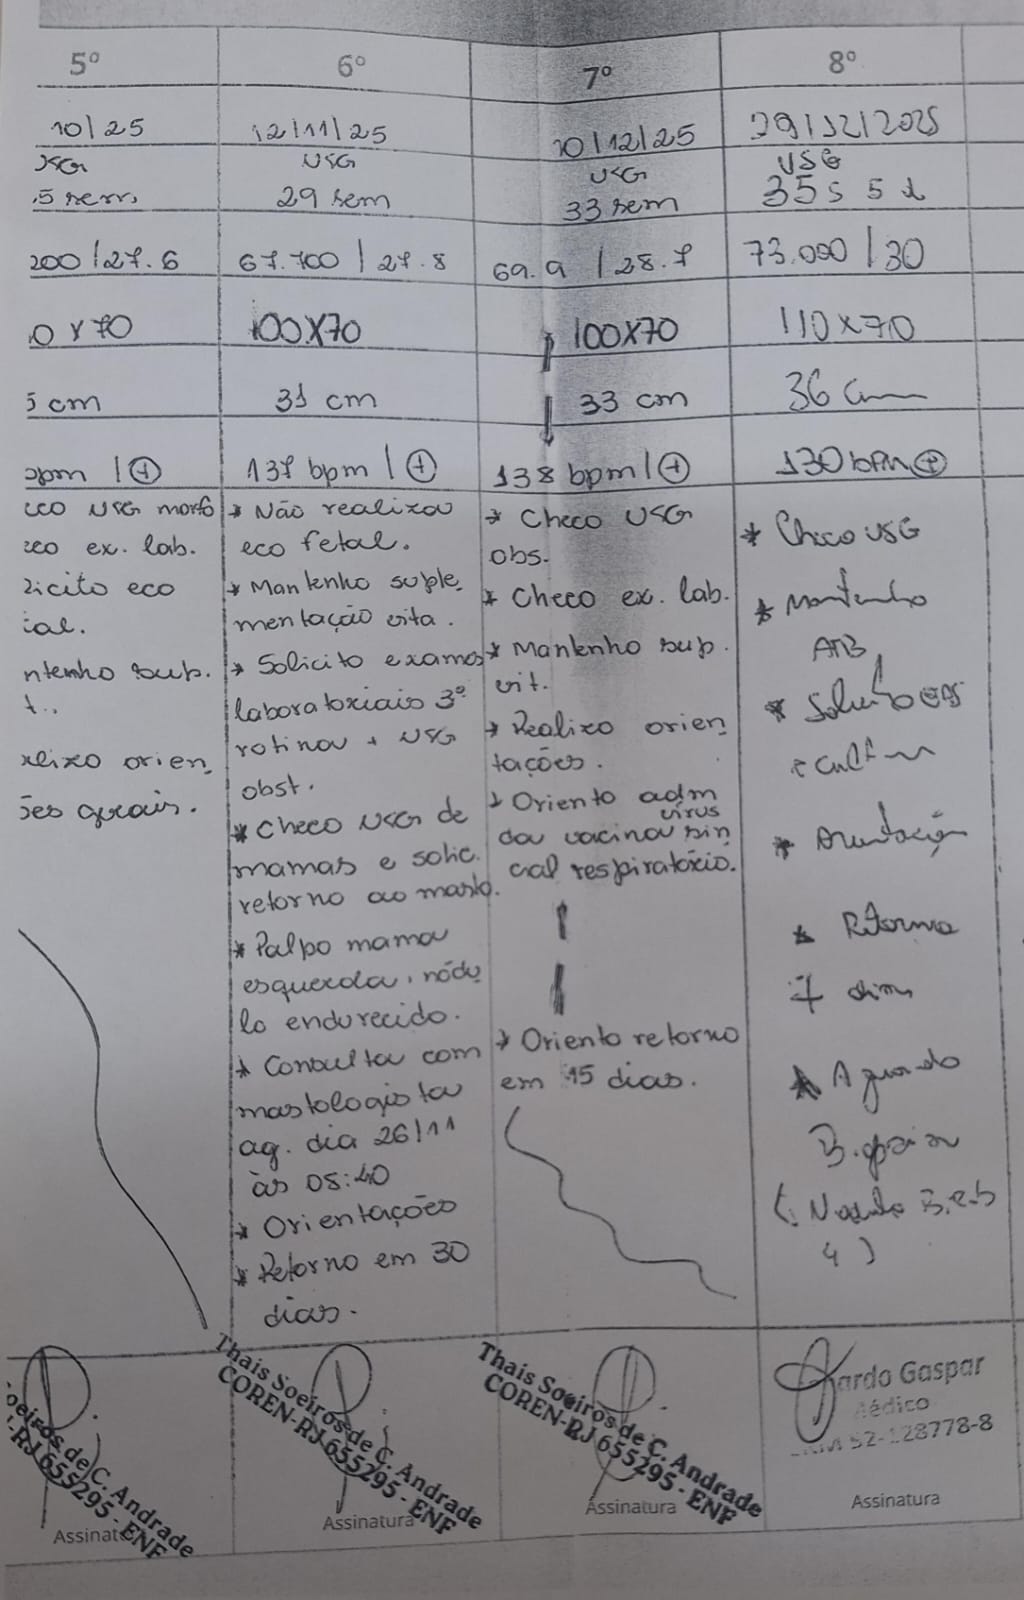 5º 6º 7º 8º
10/25 12/11/25 10/12/25 29/12/2025
USG USG USG USG
5 sem 29 sem 33 sem 35s 5d
200/27.6 67.700/27.8 69.9/28.7 73.000/30
0x70 100x70 100x70 110x70
5 cm 31 cm 33 cm 36 cm
bpm/+ 137 bpm/+ 138 bpm/+ 130 bpm +
eco USG morfo
eco ex. lab.
licito eco
ial.
ntenho sup.
t..
alizo orien
ões gerais.
* Não realizou
eco fetal.
* Mantenho suple
mentação vita.
* Solicito exames
laboratoriais 3º
rotina + USG
obst.
* Checo USG de
mamas e solic.
retorno ao masto.
* Palpo mama
esquerda, nódu
lo endurecido.
* Consulta com
mastologista
ag. dia 26/11
às 08:40
* Orientações
* Retorno em 30
dias.
* Checo USG
obs.
* Checo ex. lab.
* Mantenho sup.
vit.
* Realizo orien
tações.
* Oriento adm
vírus
da vacina sin
cial respiratório.
* Oriento retorno
em 15 dias.
* Checo USG
* Mantenho
ATB
* Solicito EAS
+ cultura
* Orientação
* Retorno
7 dias
* Aguardo
(Nódulo
4)
oeiros de C. Andrade
-RJ 655295 - ENF
Assinat
Thais Soeiros de C. Andrade
COREN-RJ 655295 - ENF
Assinatura
Thais Soeiros de C. Andrade
COREN-RJ 655295 - ENF
Assinatura
ardo Gaspar
Médico
CRM 52-128778-8
Assinatura